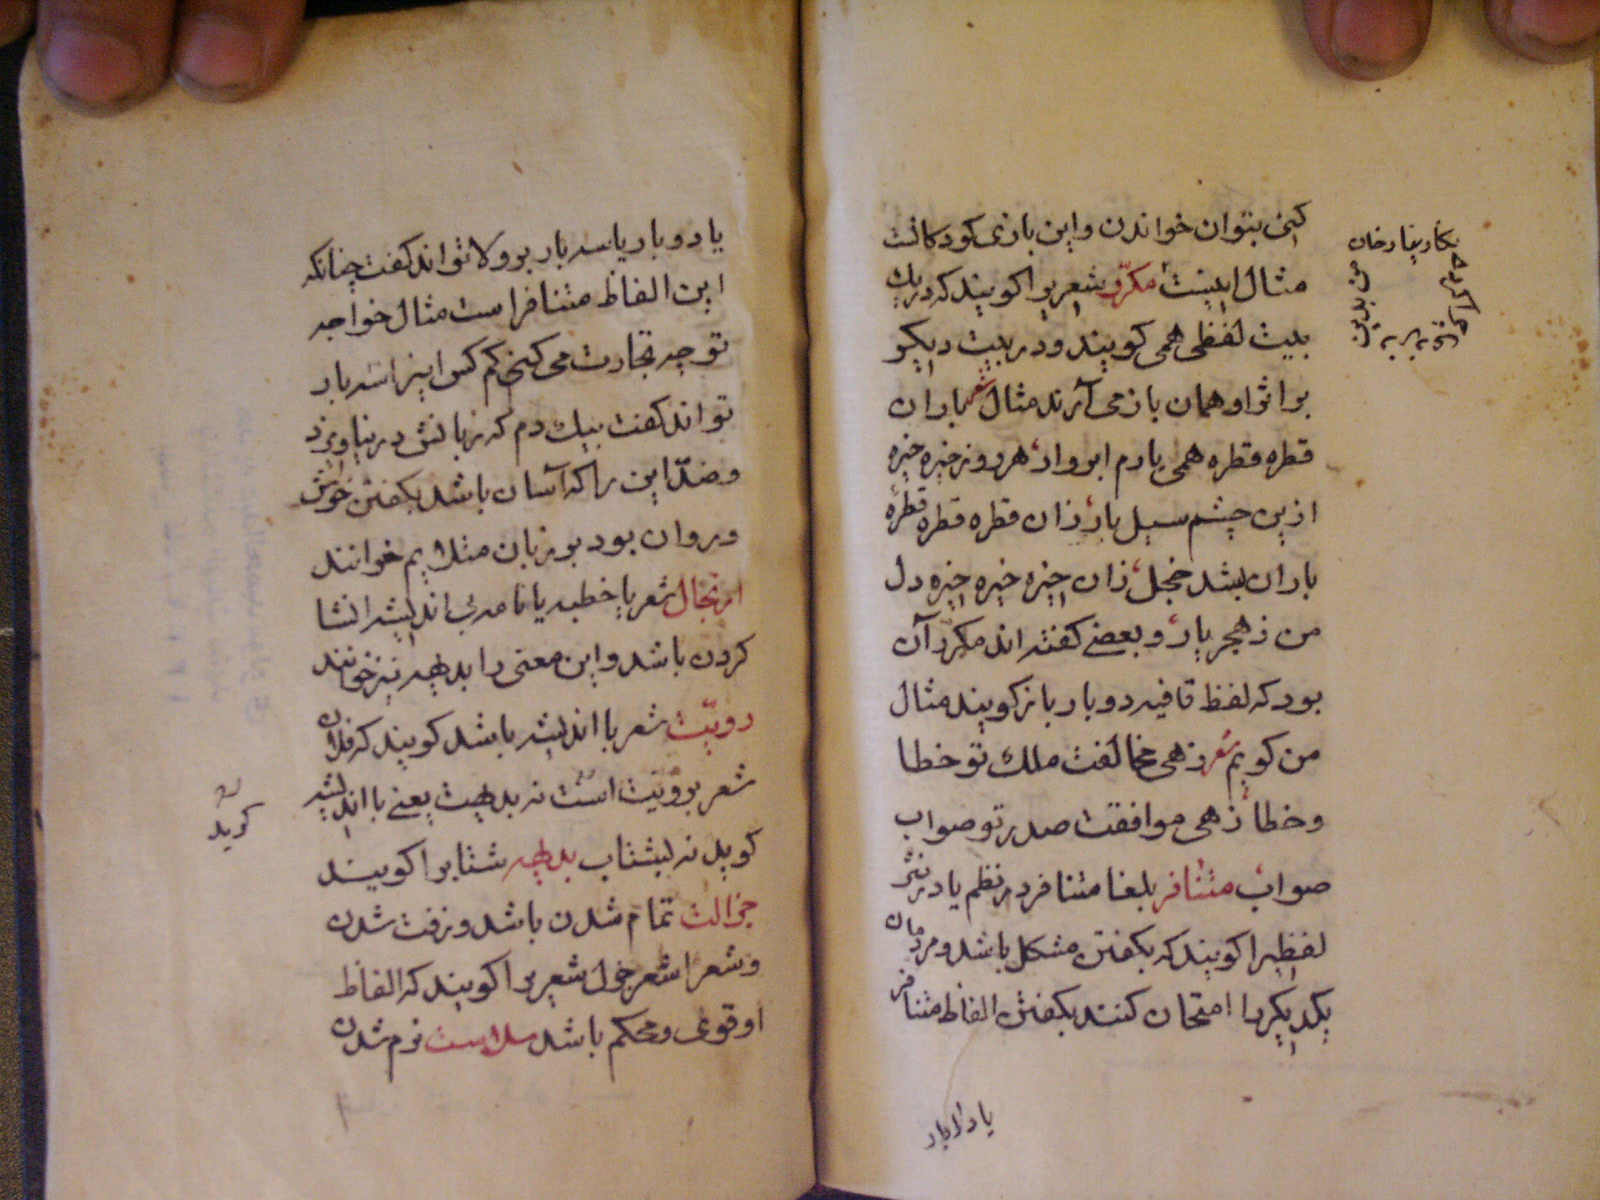 کنی بتوان خواندن و این بازی کودکانست
مثال اینست مکرر شعریرا کویند که در یك
بیت لفظی همی کویند و در بیت دیکر
بر اثر او همان باز می آرند مثال شعر باران
قطره قطره همی بارم ابروار هر روز خیره خیره
ازین چشم سیل بار زان قطره قطره قطره
باران بشد خجل زان خیره خیره خیره دل
من ز هجر یار و بعضی کفته اند مکرر آن
بود که لفظ قافیه دو بار باز کویند مثال
من کویم شعر زهی مخالفت ملك تو خطا
و خطا زهی موافقت صدر تو صواب
صواب متنافر بلغا متنافر در نظم یا در نثر
لفظیرا کویند که بکفتن مشکل باشد و مردمان
یکدیکر را امتحان کنند بکفتن الفاظ متنافر
یا دو بار
یا دو بار یا سه بار بر ولا تواند کفت چنانکه
این الفاظ متنافر است مثال خواجه
تو چه تجارت می کنی کم کس اینرا سه بار
تواند کفت بیك دم که زبانش در نیاویزد
و ضد این را که آسان باشد بکفتن خوش
و روان بود بر زبان متلایم خوانند
ارتجال شعر یا خطبه یا نامه بی اندیشه انشا
کردن باشد و این معنی را بدیهه نیز خوانند
رویت شعر با اندیشه باشد کویند که فلان
شعر برویت است نه بدیهت یعنی با اندیشه
کوید نه بشتاب بدیهه شتابرا کویند
جزالت تمام شدن باشد و زفت شدن
و شعرا شعر جزل شعریرا کویند که الفاظ
او قوی و محکم باشد سلاست نرم شدن
کوید